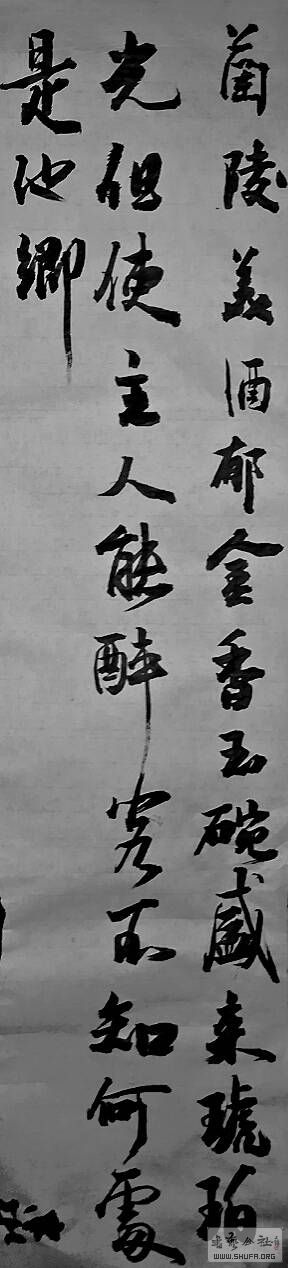 蘭陵美酒郁金香玉碗盛来琥珀
光但使主人能醉客不知何處
是他鄉
書藝公社
WWW.SHUFA.ORG